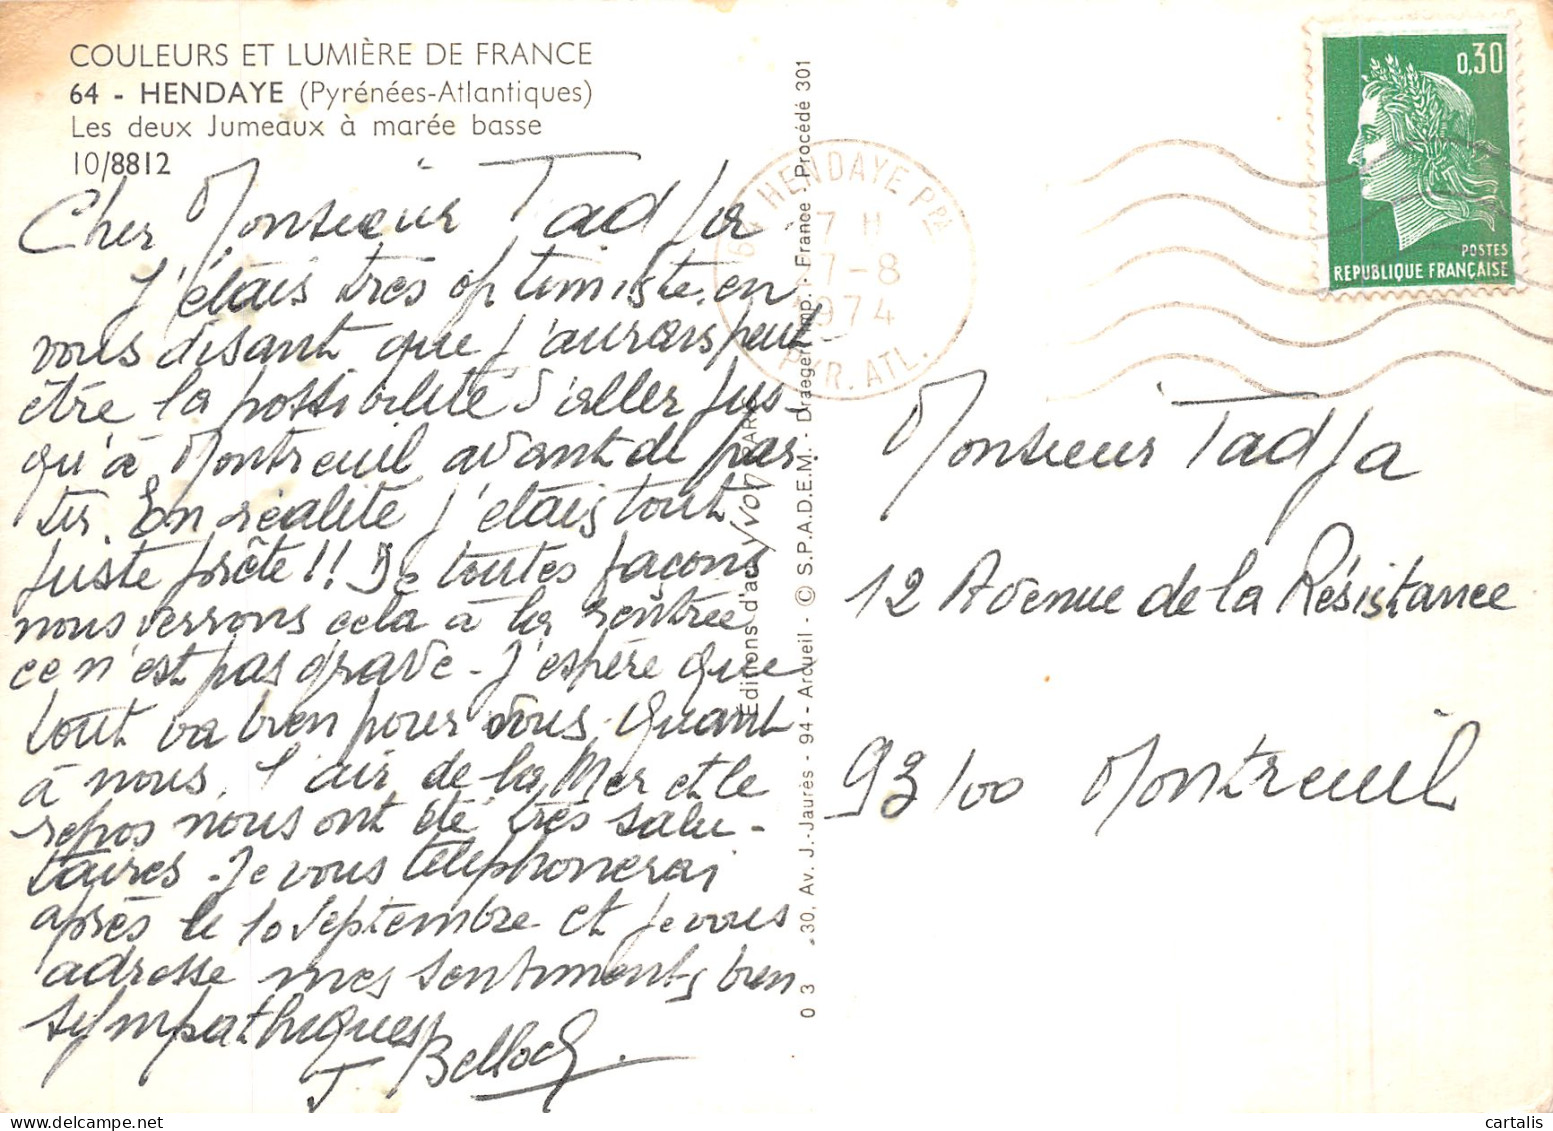 COULEURS ET LUMIÈRE DE FRANCE
64 - HENDAYE (Pyrénées-Atlantiques)
Les deux Jumeaux à marée basse
10/8812
Cher Monsieur Tadja
J'étais très optimiste, en
vous disant que j'aurais peut-
être la possibilité d'aller jus-
qu'à Montreuil avant de par-
tir. En réalité j'étais tout
juste prête !! De toutes façons
nous verrons cela à la rentrée
ce n'est pas grave - J'espère que
tout va bien pour vous. Quant
à nous, l'air de la Mer et le
repos nous ont été très salu-
taires - Je vous téléphonerai
après le 10 Septembre et je vous
adresse mes sentiments bien
sympathiques
J Belloch
Editions d'art YVON PARIS
0 3 30, Av. J.-Jaurès - 94 - Arcueil - © S.P.A.D.E.M. - Draeger Imp. - France - Procédé 301
64 HENDAYE Pal
17 H
27-8
1974
PYR. ATL.
0,30
POSTES
REPUBLIQUE FRANÇAISE
Monsieur Tadja
12 Avenue de la Résistance
93100 Montreuil
cartalis